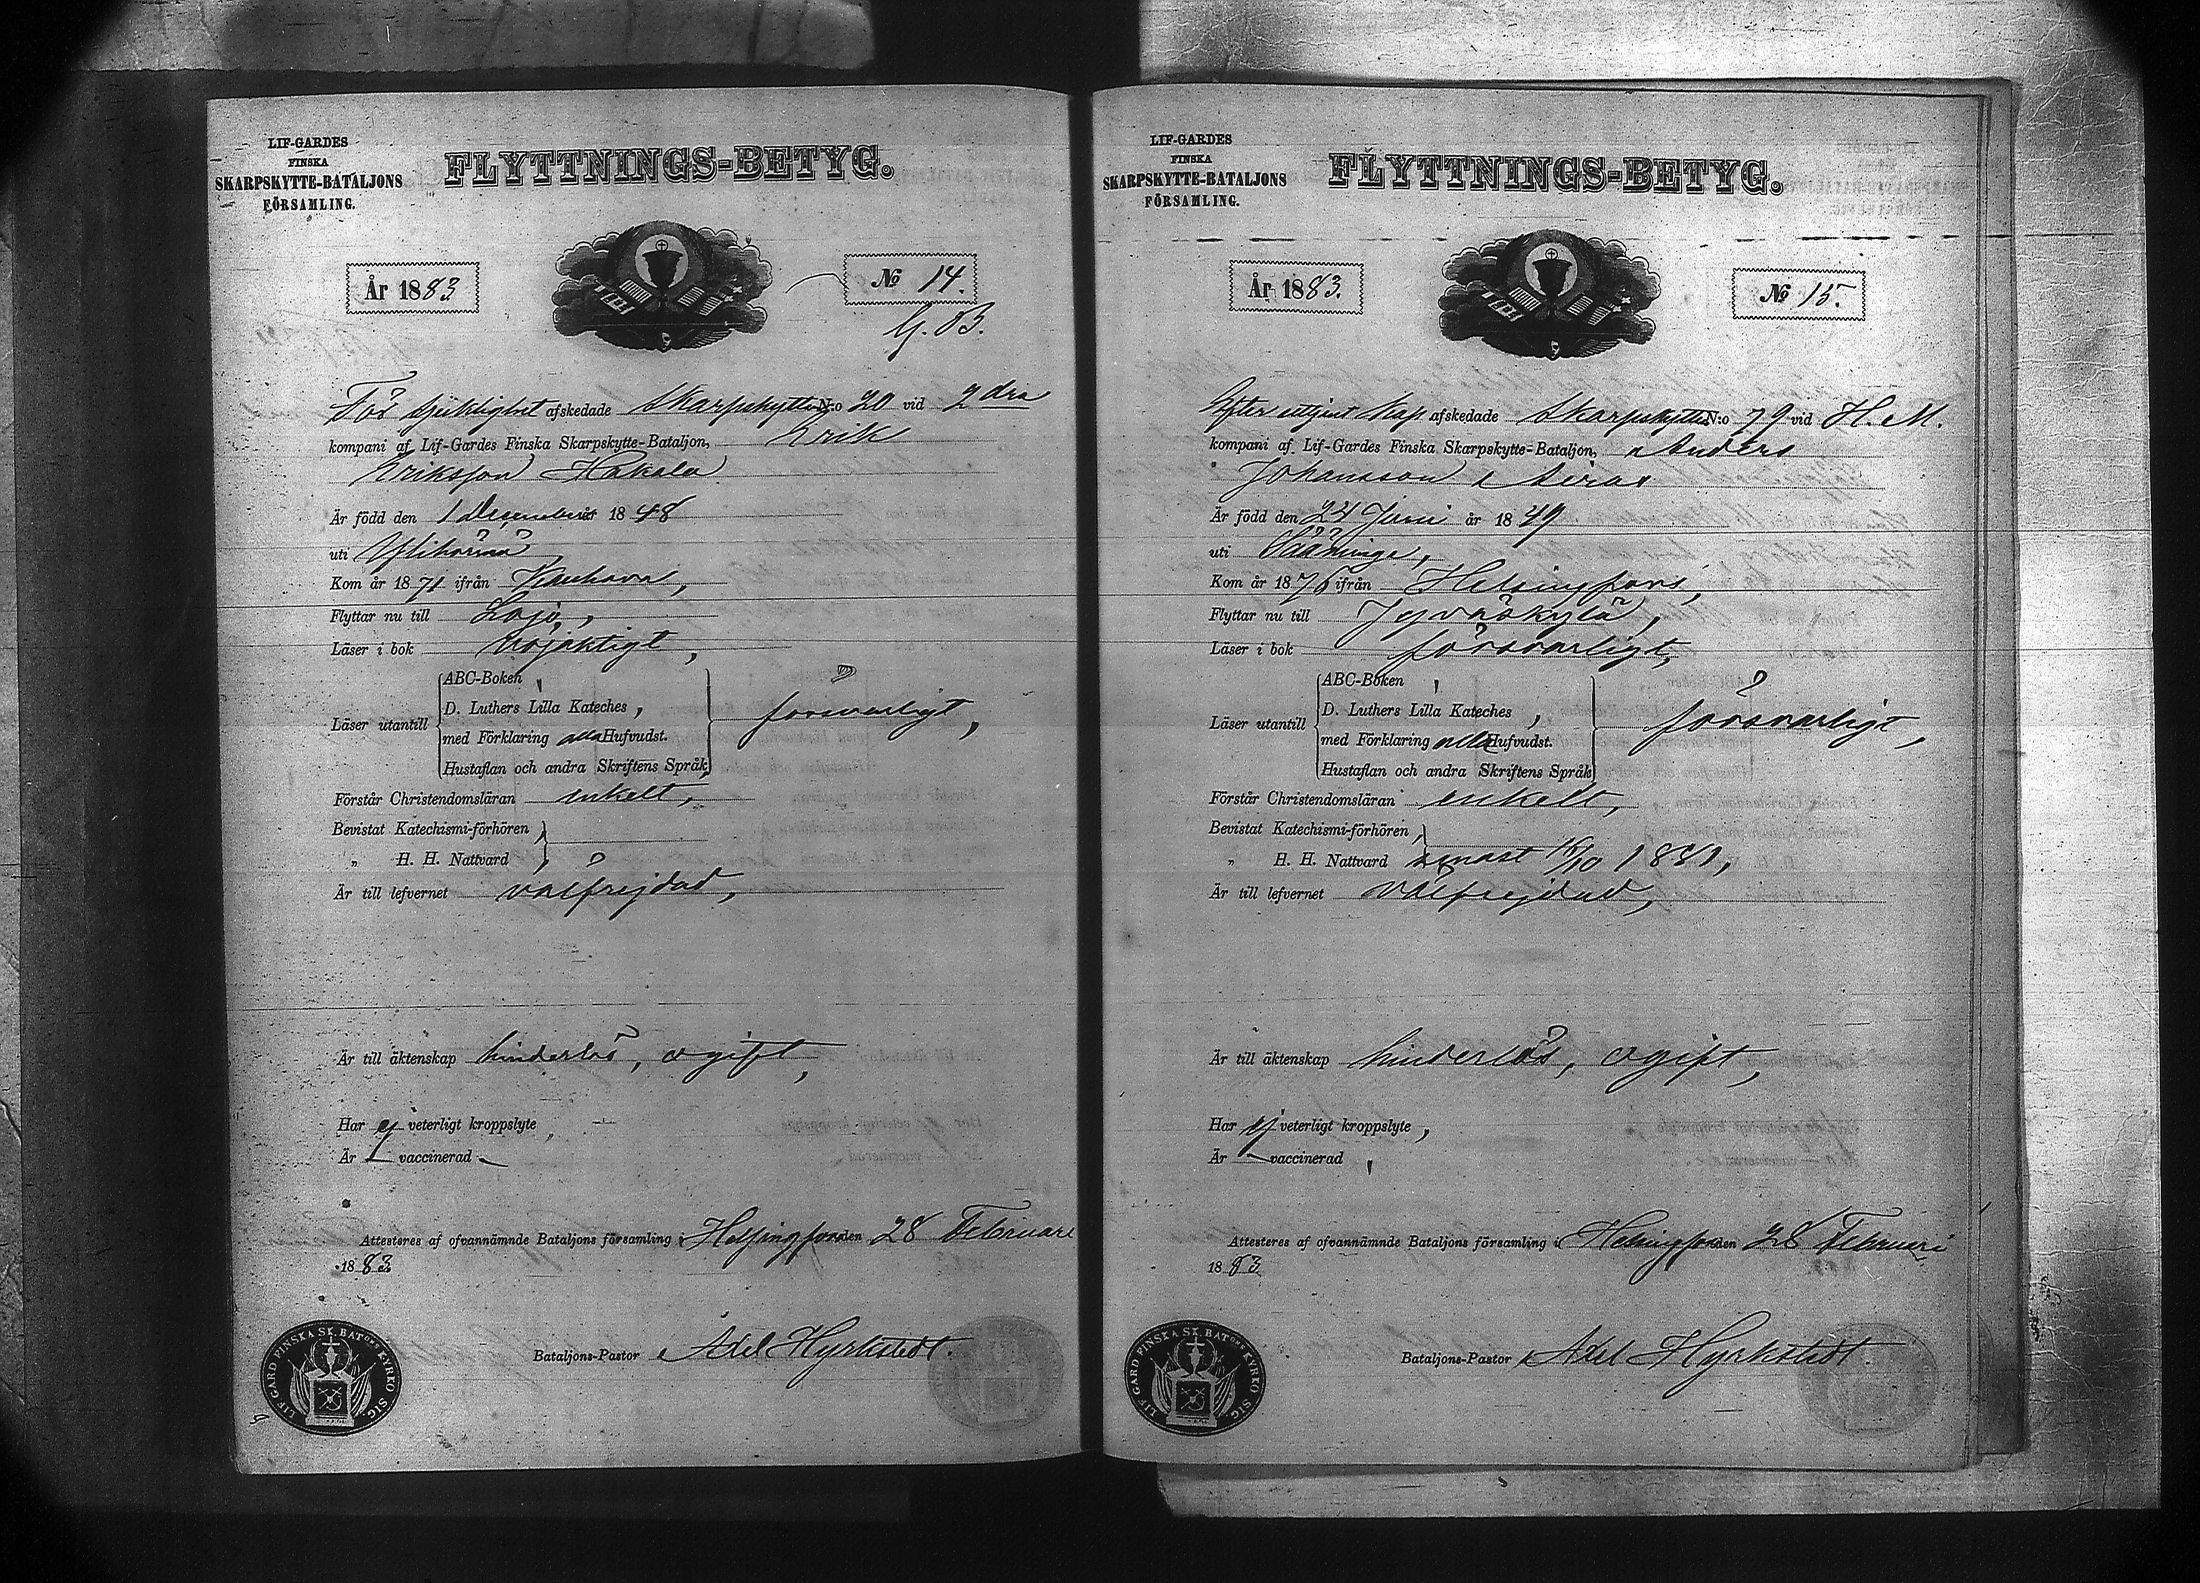 LIF-GARDES
FINSKA
SKARPSKYTTE-BATALJONS
FÖRSAMLING.
FLYTTNINGS-BETYG.
År 1883
№ 14.
G. B.
För sjuklighet afskedade Skarpskytten N:o 20 vid 2 dra
kompani af Lif-Gardes Finska Skarpskytte-Bataljon, Erik
Eriksson Hakala
Är född den 1 December år 1848
uti Ylihärmä,
Kom år 1871 ifrån Kauhava,
Flyttar nu till Lojo,
Läser i bok nöjaktigt,
Läser utantill
ABC-Boken,
D. Luthers Lilla Kateches,
med Förklaring alla Hufvudst.
Hustaflan och andra Skriftens Språk,
försvarligt,
Förstår Christendomsläran enkelt,
Bevistat Katechismi-förhören,
„ H. H. Nattvard,
Är till lefvernet välfrejdad,
Är till äktenskap hinderlös, ogift,
Har ej veterligt kroppslyte,
Är — vaccinerad
Attesteres af ofvannämnde Bataljons församling i Helsingfors den 28 Februari
1883
Bataljons-Pastor Axel Hyrkstedt.
LIF GARD FINSKA SK. BATONS KYRKO SIG.
LIF-GARDES
FINSKA
SKARPSKYTTE-BATALJONS
FÖRSAMLING.
FLYTTNINGS-BETYG.
År 1883.
№ 15.
Efter uttjent kap. afskedade Skarpskytten N:o 79 vid H. M.
kompani af Lif-Gardes Finska Skarpskytte-Bataljon, Anders
Johansson Airas
Är född den 24 Juni år 1849
uti Sääminge,
Kom år 1876 ifrån Helsingfors,
Flyttar nu till Jyväskylä,
Läser i bok försvarligt,
Läser utantill
ABC-Boken,
D. Luthers Lilla Kateches,
med Förklaring alla Hufvudst.
Hustaflan och andra Skriftens Språk
försvarligt,
Förstår Christendomsläran enkelt,
Bevistat Katechismi-förhören,
„ H. H. Nattvard senast 15/10 1881,
Är till lefvernet välfrejdad,
Är till äktenskap hinderlös, ogift,
Har ej veterligt kroppslyte,
Är — vaccinerad,
Attesteres af ofvannämnde Bataljons församling i Helsingfors den 28 Februari
1883
Bataljons-Pastor Axel Hyrkstedt.
LIF GARD FINSKA SK. BATONS KYRKO SIG.